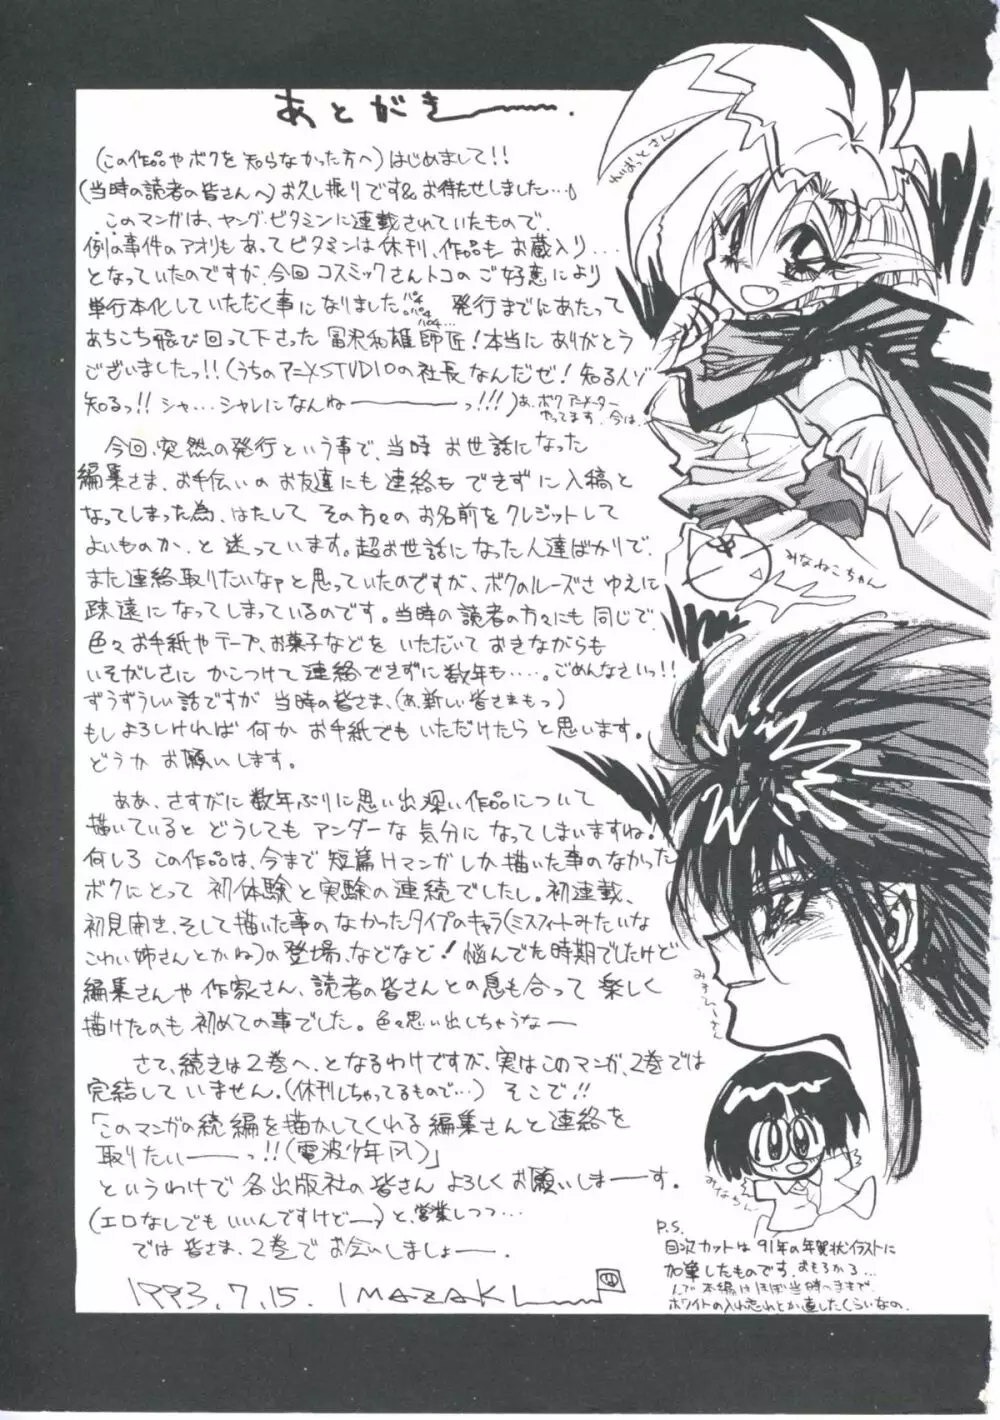 あとがき──.
(この作品やボクを知らなかった方へ)はじめまして!!
(当時の読者の皆さんへ)お久し振りです&お待たせしました…♪
このマンガは、ヤング・ビタミンに連載されていたもので、
例の事件のアオリもあってビタミンは休刊、作品もお蔵入り…
となっていたのですが、今回コスミックさんトコのご好意により
単行本化していただく事になりました。パチパチパチ… 発行までにあたって
あちこち飛び回って下さった冨沢和雄師匠!本当にありがとう
ございましたっ!!(うちのアニメSTUDIOの社長なんだぜ!知る人ゾ
知るっ!!シャ…シャレになんね──っ!!!)あ、ボクアニメーター
やってます、今は、
今回、突然の発行という事で、当時お世話になった
編集さま、お手伝いのお友達にも連絡もできずに入稿と
なってしまった為、はたしてその方々のお名前をクレジットして
よいものか、と迷っています。超お世話になった人達ばかりで、
また連絡取りたいなァと思っていたのですが、ボクのルーズさゆえに
疎遠になってしまっているのです。当時の読者の方々にも同じで、
色々お手紙やテープ、お菓子などをいただいておきながらも
いそがしさにかこつけて連絡できずに数年も……。ごめんなさいっ!!
ずうずうしい話ですが当時の皆さま、(あ、新しい皆さまもっ)
もしよろしければ何かお手紙でもいただけたらと思います。
どうかお願いします。
ああ、さすがに数年ぶりに思い出深い作品について
描いているとどうしてもアンダーな気分になってしまいますね!
何しろこの作品は、今まで短篇Hマンガしか描いた事のなかった
ボクにとって初体験と実験の連続でしたし。初連載、
初見開き、そして描いた事のなかったタイプのキャラ(ミスフィートみたいな
こわい姉さんとかね)の登場、などなど!悩んでた時期でしたけど
編集さんや作家さん、読者の皆さんとの息も合って楽しく
描けたのも初めての事でした。色々思い出しちゃうなー
さて、続きは2巻へ、となるわけですが、実はこのマンガ、2巻では
完結していません。(休刊しちゃってるもので…)そこで!!
「このマンガの続編を描かしてくれる編集さんと連絡を
取りたいーーっ!!(電波少年風)」
というわけで各出版社の皆さんよろしくお願いしまーす。
(エロなしでもいいんですけどーっ)と、営業しつつ…
では皆さま、2巻でお会いしましょー。
1993.7.15. IMAZAKI
れいおっとさん
みなねこちゃん
みなちん
P.S.
目次カットは91年の年賀状イラストに
加筆したものです。おもろかろ…
んで本編はほぼ当時へままで、
ホワイトの入れ忘れとか直したくらいなの。